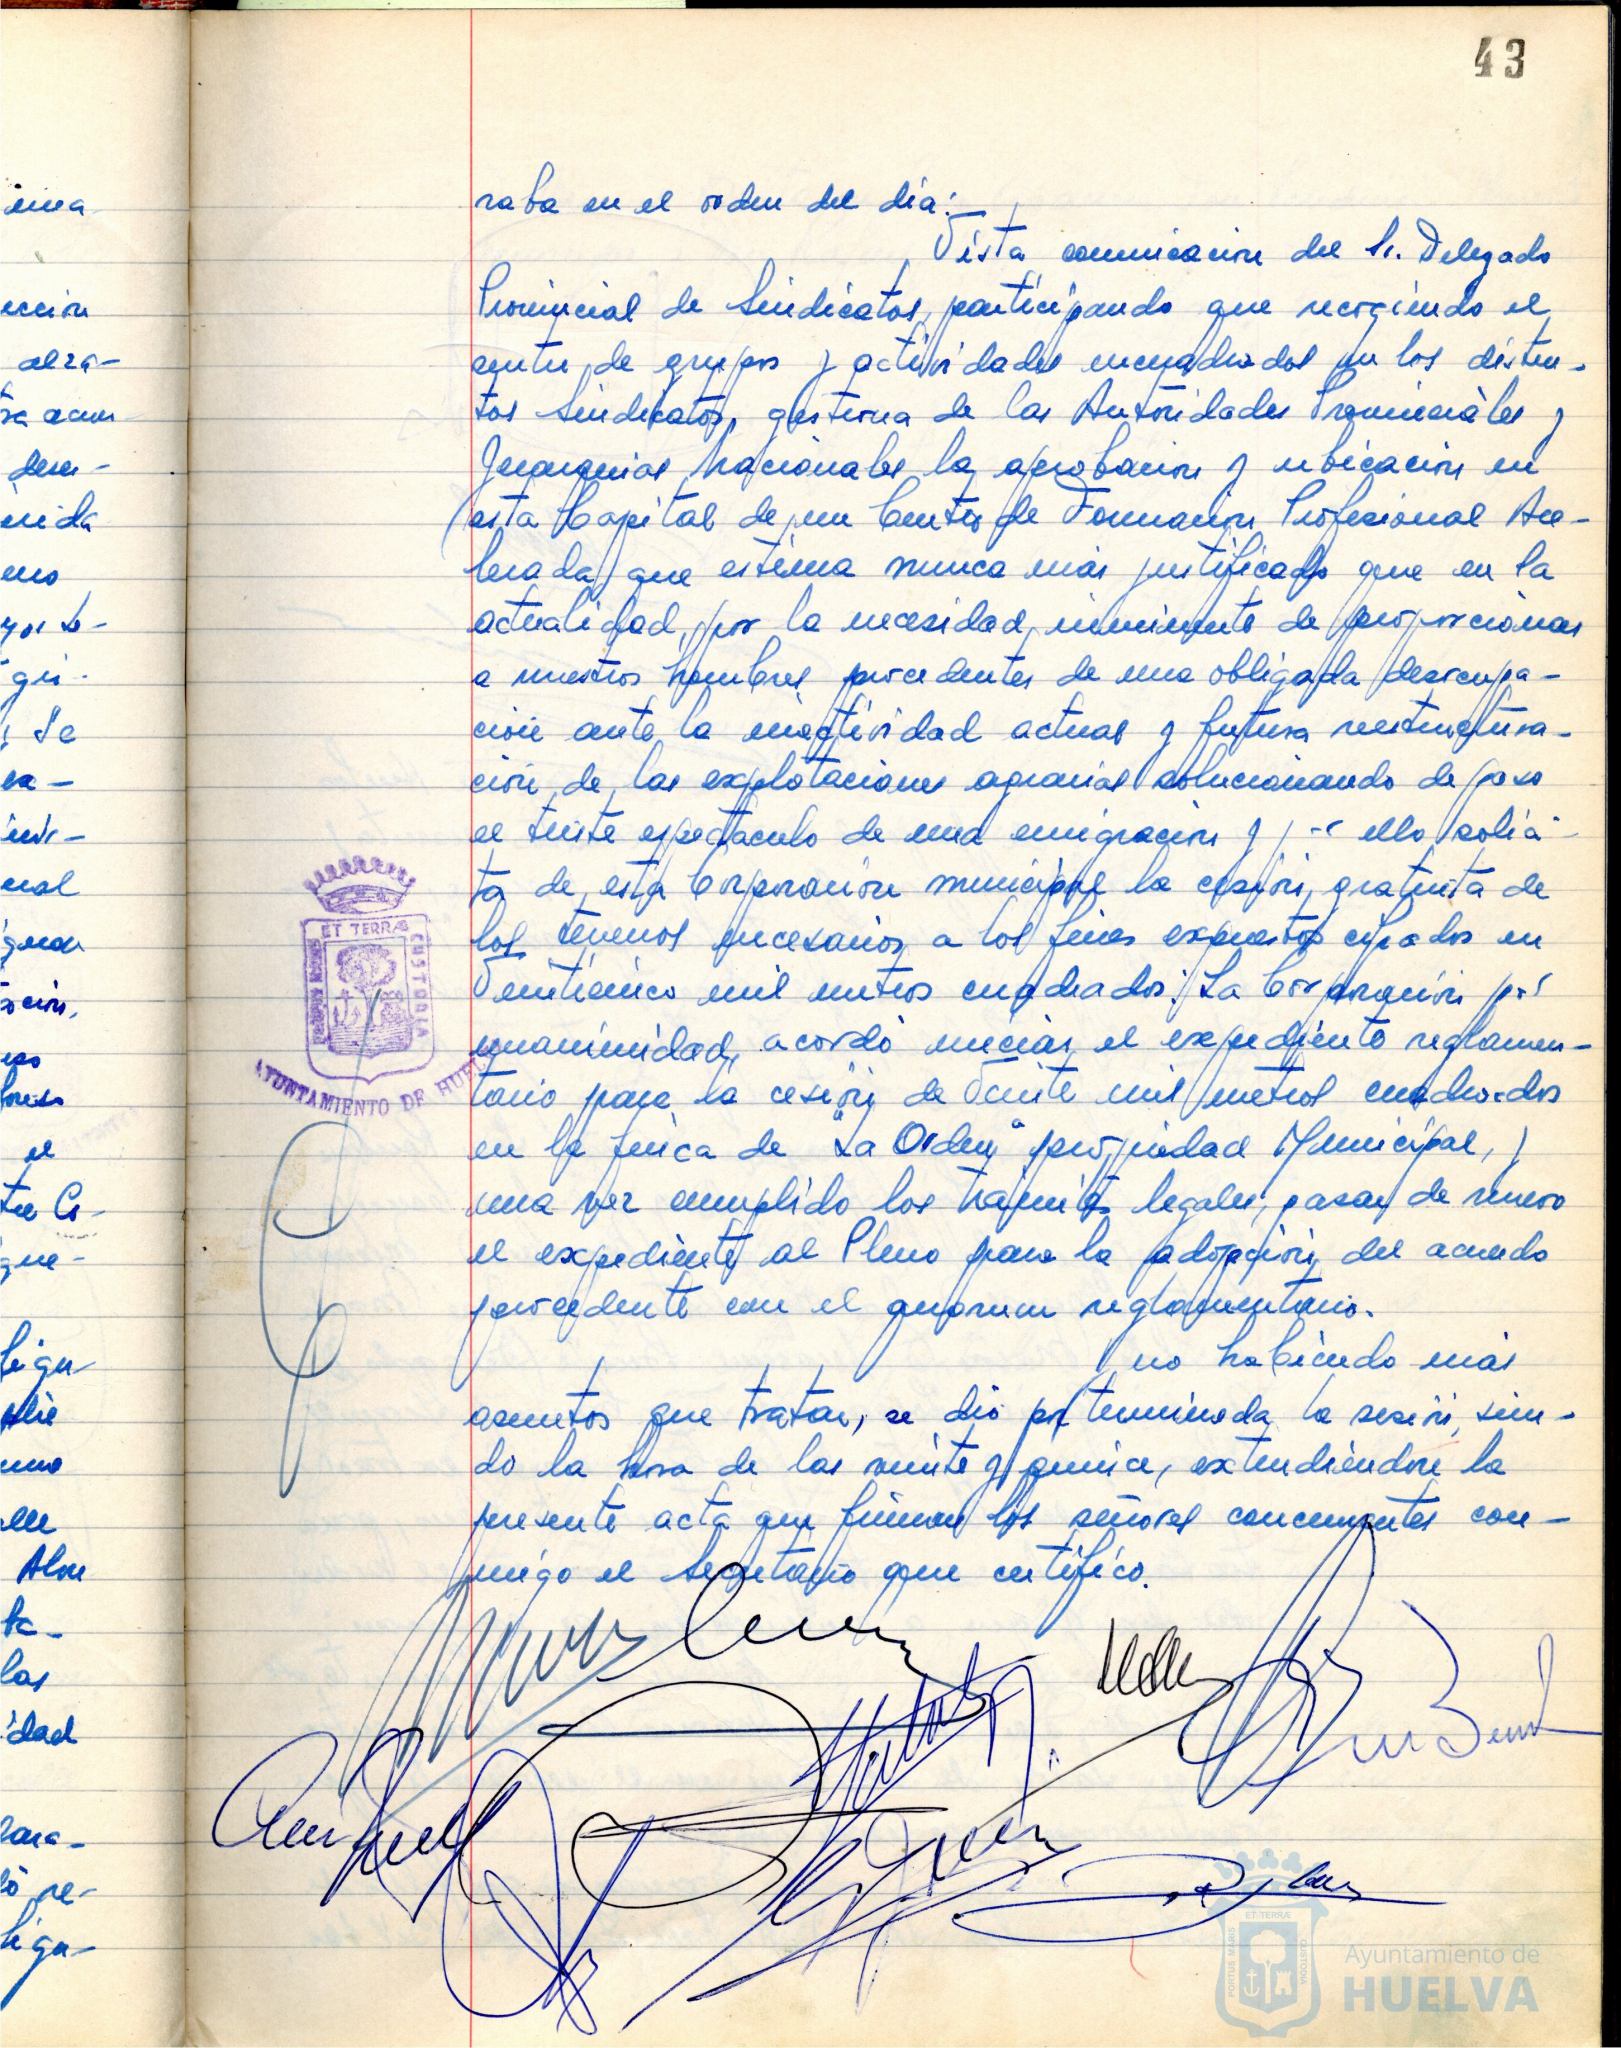 43
raba en el orden del dia:
Vista comunicacion del Sr. Delegado
Provincial de Sindicatos, participando que recogiendo el
de grupos y actividades encuadrados en los distin-
tos Sindicatos, gestiona de las Autoridades Provinciales y
Jerarquias Nacionales la aprobacion y ubicacion en
esta Capital de un Centro de Formacion Profesional Ace-
lerada que estima nunca más justificado que en la
actualidad, por la necesidad inminente de proporcionar
a nuestros hombres procedentes de una obligada desocupa-
ción ante la inactividad actual y futura reestructura-
ción de las explotaciones agrarias solucionando de paso
el triste espectaculo de una emigracion y por ello solici-
ta de esta Corporación municipal la cesión gratuita de
los terrenos necesarios a los fines expuestos cifrados en
Veinticinco mil metros cuadrados. La Corporación por
unanimidad, acordó iniciar el expediente reglamen-
tario para la cesión de Veinte mil metros cuadrados
en la finca de "La Orden" propiedad Municipal, y
una vez cumplido los tramites legales, pasar de nuevo
el expediente al Pleno para la adopción del acuerdo
procedente con el quorum reglamentario.
no habiendo más
asuntos que tratar, se dio por terminada la sesión, sien-
do la hora de las veinte y quince, extendiéndose la
presente acta que firman los señores concurrentes con-
migo el Secretario que certifico.
ET TERRÆ CUSTODIA
PORTUS MARIS
AYUNTAMIENTO DE HUELVA
ET TERRÆ
PORTUS MARIS
CUSTODIA
Ayuntamiento de
HUELVA